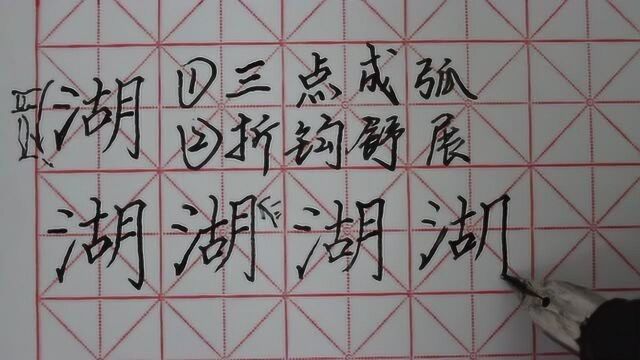 湖 ①三点成弧
②折钩舒展
湖 湖 湖